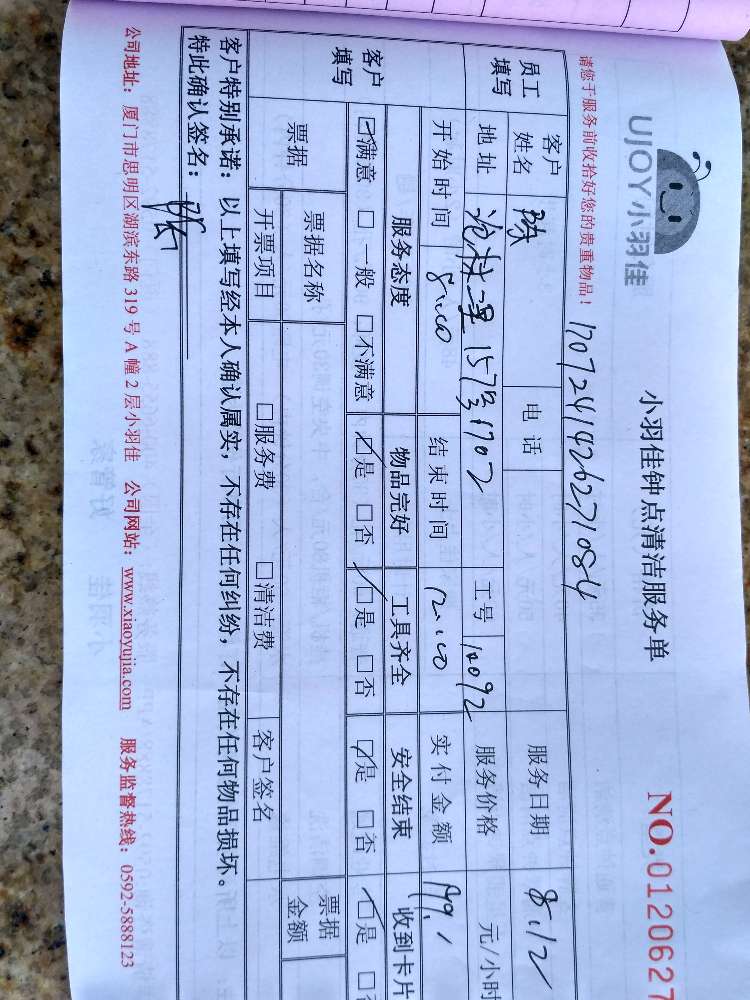 UJOY小羽佳
小羽佳钟点清洁服务单
NO.0120627
请您于服务前收拾好您的贵重物品！
17072414262271084
员工填写 客户姓名 电话 服务日期 8.12
地址 157号1702 工号 14092 服务价格 元/小时
开始时间 8:00 结束时间 12:00 实付金额
客户填写 服务态度 物品完好 工具齐全 安全结束 收到卡片
☑满意 □一般 □不满意 ☑是 □否 ☑是 □否 ☑是 □否 ☑是 □否
票据 票据名称 票据金额
开票项目 □服务费 □清洁费 客户签名
客户特别承诺：以上填写经本人确认属实，不存在任何纠纷，不存在任何物品损坏。
特此确认签名：
公司地址：厦门市思明区湖滨东路319号A幢2层小羽佳 公司网站：www.xiaoyujia.com 服务监督热线：0592-5888123